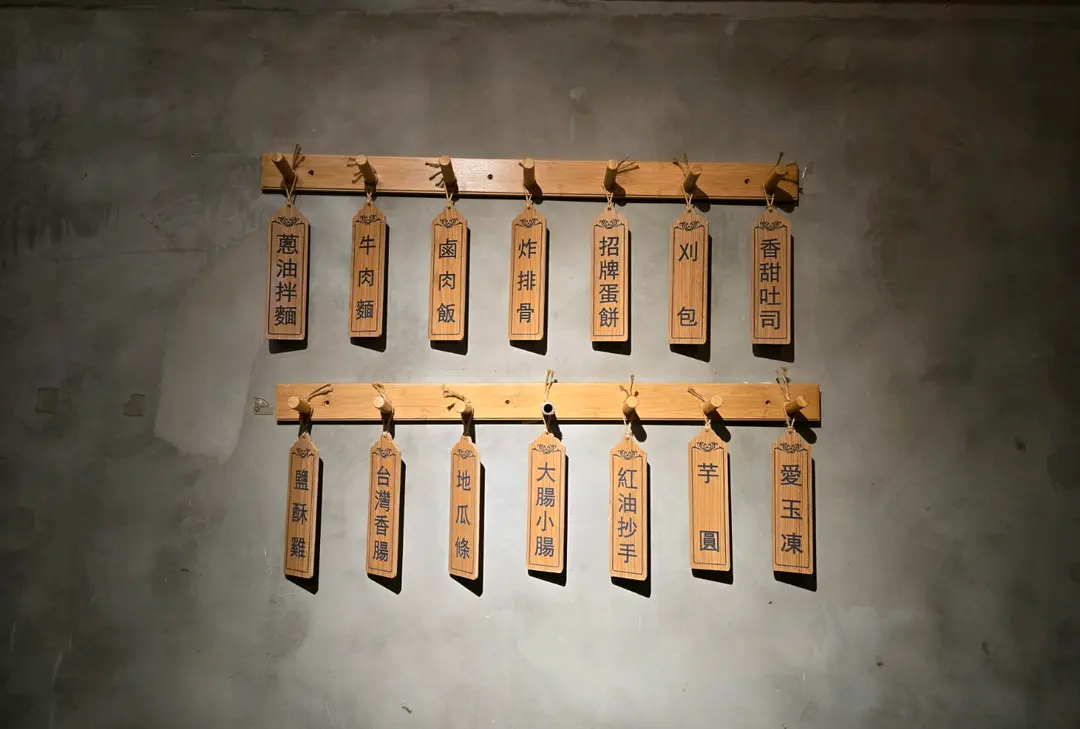 蔥油拌麵
牛肉麵
鹵肉飯
炸排骨
招牌蛋餅
刈包
香甜吐司
鹽酥雞
台灣香腸
地瓜條
大腸小腸
紅油抄手
芋圓
愛玉凍